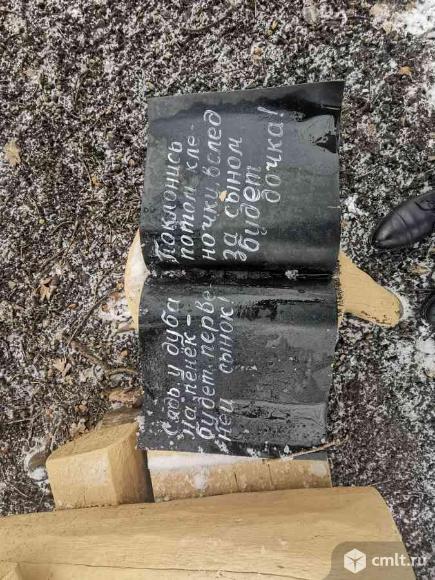 Сядь у дуба
на пенёк –
будет перве-
нец сынок!
Поклонись
потом кле-
ночку, вслед
за сыном
будет
дочка!
cmlt.ru